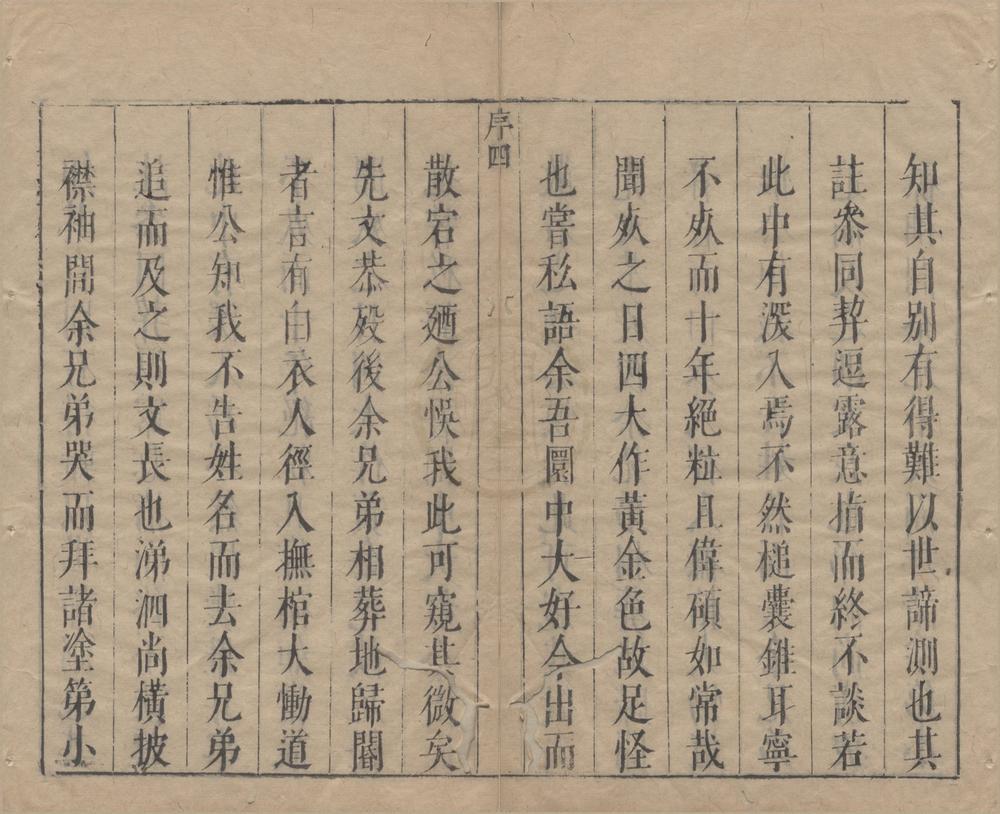 知其自別有得難以世諦測也其
註叅同契逗露意指而終不談若
此中有深入焉不然槌囊錐耳寧
不夾而十年絕粒且偉碩如常哉
聞夾之日四大作黃金色故足怪
也嘗私語余吾圜中大好今出而
序四
散宕之廼公悞我此可窺其微矣
先文恭歿後余兄弟相葬地歸閽
者言有白衣人徑入撫棺大慟道
惟公知我不告姓名而去余兄弟
追而及之則文長也涕泗尚橫披
襟袖間余兄弟哭而拜諸塗第小